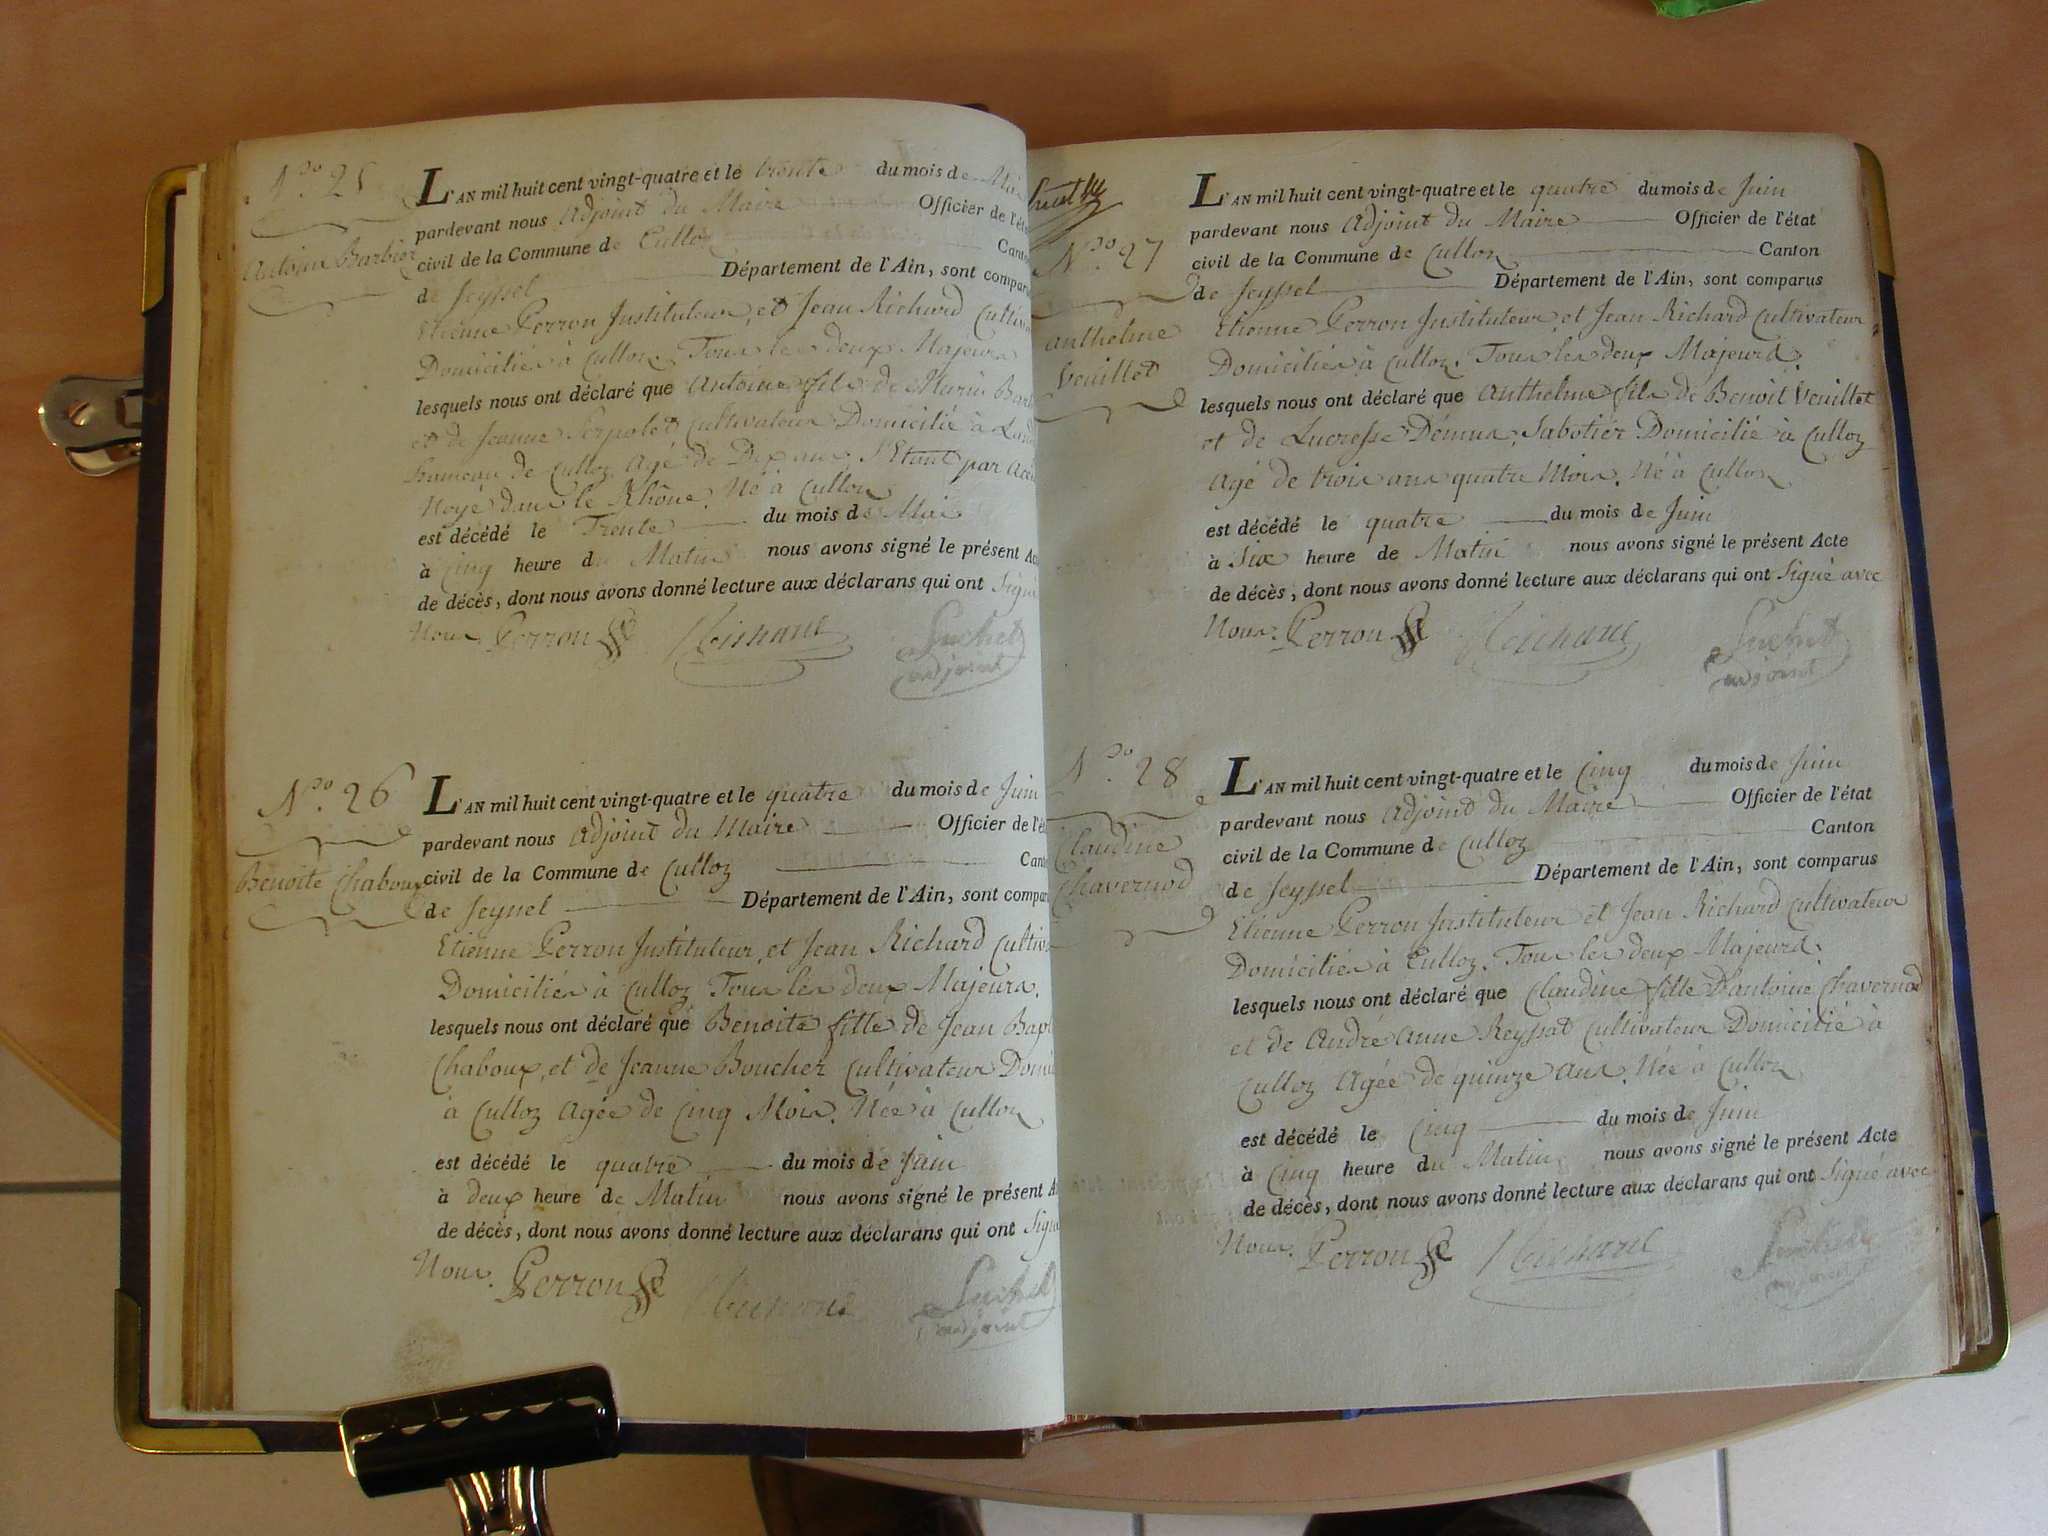 N.° 25
Antoine Barbier
L'AN mil huit cent vingt-quatre et le trente du mois de Mai
pardevant nous Adjoint du Maire Officier de l'éta
civil de la Commune de Culloz Canto
de Seyssel Département de l'Ain, sont comparus
Etienne Perron Instituteur, et Jean Richard Cultiva
Domiciliés à Culloz. Tous les deux Majeurs
lesquels nous ont déclaré que Antoine fils de Marin Barb
et de Jeanne Serpolet Cultivateur Domicilié à
hameau de Culloz Agé de Dix ans, S'Etant par Acci
Noyé dans le Rhône. Né à Culloz
est décédé le Trente du mois de Mai
à cinq heure du Matin nous avons signé le présent Ac
de décès, dont nous avons donné lecture aux déclarans qui ont Signé
Nous. Perron Richard Suchet
adjoint
N.° 26
Benoite Chaboux
L'AN mil huit cent vingt-quatre et le quatre du mois de Juin
pardevant nous Adjoint du Maire Officier de l'ét
civil de la Commune de Culloz Cant
de Seyssel Département de l'Ain, sont compar
Etienne Perron Instituteur, et Jean Richard Cultiv
Domiciliés à Culloz Tous les deux Majeurs.
lesquels nous ont déclaré que Benoite fille de Jean Bapt
Chaboux, et de Jeanne Boucher Cultivateur Domic
à Culloz Agée de Cinq Mois. Née à Culloz
est décédé le quatre du mois de Juin
à deux heure de Matin nous avons signé le présent A
de décès, dont nous avons donné lecture aux déclarans qui ont Signé
Nous. Perron Richard Suchet
adjoint
N.° 27
Anthelme
Veuillet
L'AN mil huit cent vingt-quatre et le quatre du mois de Juin
pardevant nous Adjoint du Maire Officier de l'état
civil de la Commune de Culloz Canton
de Seyssel Département de l'Ain, sont comparus
Etienne Perron Instituteur, et Jean Richard Cultivateur
Domiciliés à Culloz. Tous les deux Majeurs.
lesquels nous ont déclaré que Anthelme fils de Benoit Veuillet
et de Lucresse Démus Sabotier Domicilié à Culloz
Agé de trois ans quatre Mois. Né à Culloz
est décédé le quatre du mois de Juin
à Six heure de Matin nous avons signé le présent Acte
de décès, dont nous avons donné lecture aux déclarans qui ont Signé avec
Nous. Perron Richard Suchet
adjoint
N.° 28
Claudine
Chavernod
L'AN mil huit cent vingt-quatre et le Cinq du mois de Juin
pardevant nous Adjoint du Maire Officier de l'état
civil de la Commune de Culloz Canton
de Seyssel Département de l'Ain, sont comparus
Etienne Perron Instituteur et Jean Richard Cultivateur
Domiciliés à Culloz. Tous les deux Majeurs.
lesquels nous ont déclaré que Claudine fille D'antoine Chavernod
et de Andrée Anne Reyssat Cultivateur Domicilié à
Culloz Agée de quinze Ans. Née à Culloz
est décédé le Cinq du mois de Juin
à Cinq heure du Matin nous avons signé le présent Acte
de décès, dont nous avons donné lecture aux déclarans qui ont Signé avec
Nous. Perron Richard Suchet
adjoint